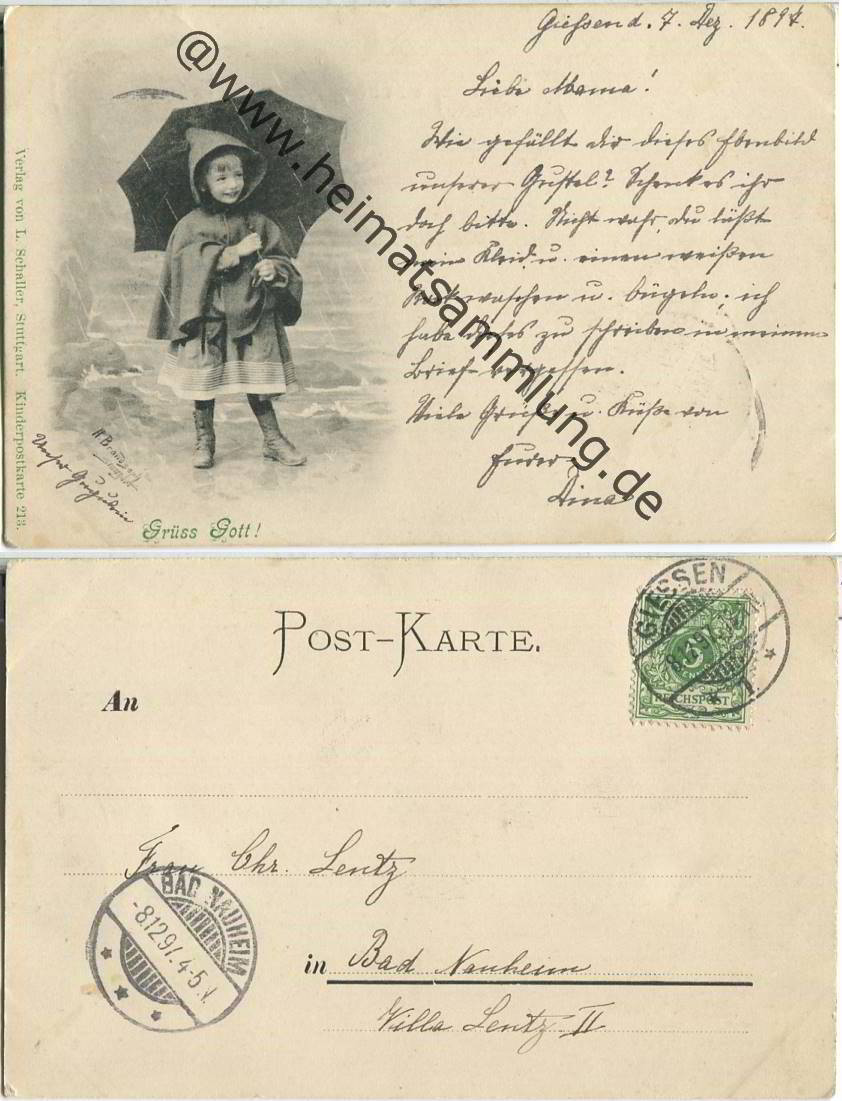 Giessen d. 7. Dez. 1897.
Liebe Mama!
Wie gefällt dir dieses Ebenbild
unserer Gustel? Schenk es ihr
doch bitte. Nicht wahr, du läßt
mein Kleid u. einen weißen
Rock waschen u. bügeln; ich
habe dieses zu schreiben in meinem
Brief vergessen.
Viele Grüße u. Küße von
Eurer
Dina
@www.heimatsammlung.de
Verlag von L. Schaller, Stuttgart. Kinderpostkarte 213.
Unser
Grüss Gott!
POST-KARTE.
An
GIESSEN
8.12.97
5
REICHSPOST
Frau Chr. Lentz
BAD NAUHEIM
-8.12.97. 4-5.V.
in Bad Nauheim
Villa Lentz II